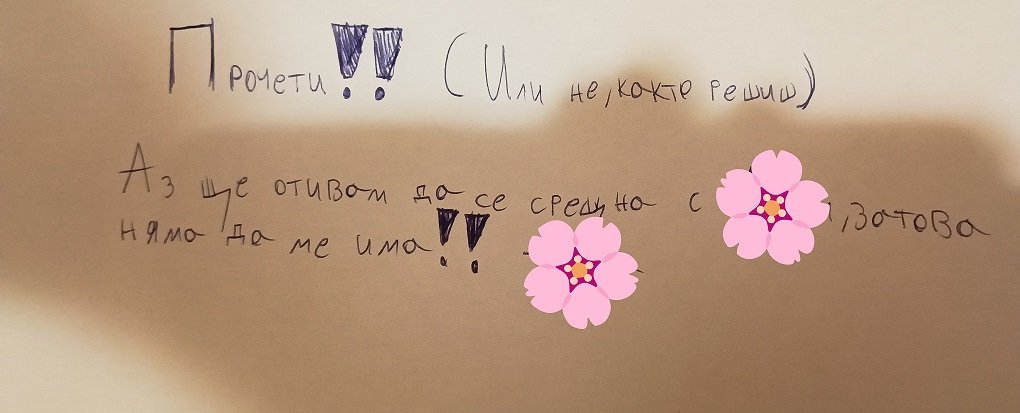 Прочети!! (Или не, както решиш)
Аз ще отивам да се срещна с , затова
няма да ме има!!